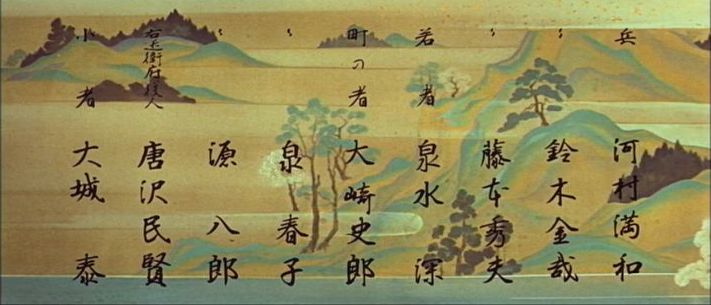 兵 河村満和
〃 鈴木金哉
〃 藤本秀夫
若者 泉水深
町の者 大崎史郎
〃 泉春子
〃 源八郎
唐沢民賢
小者 大城泰